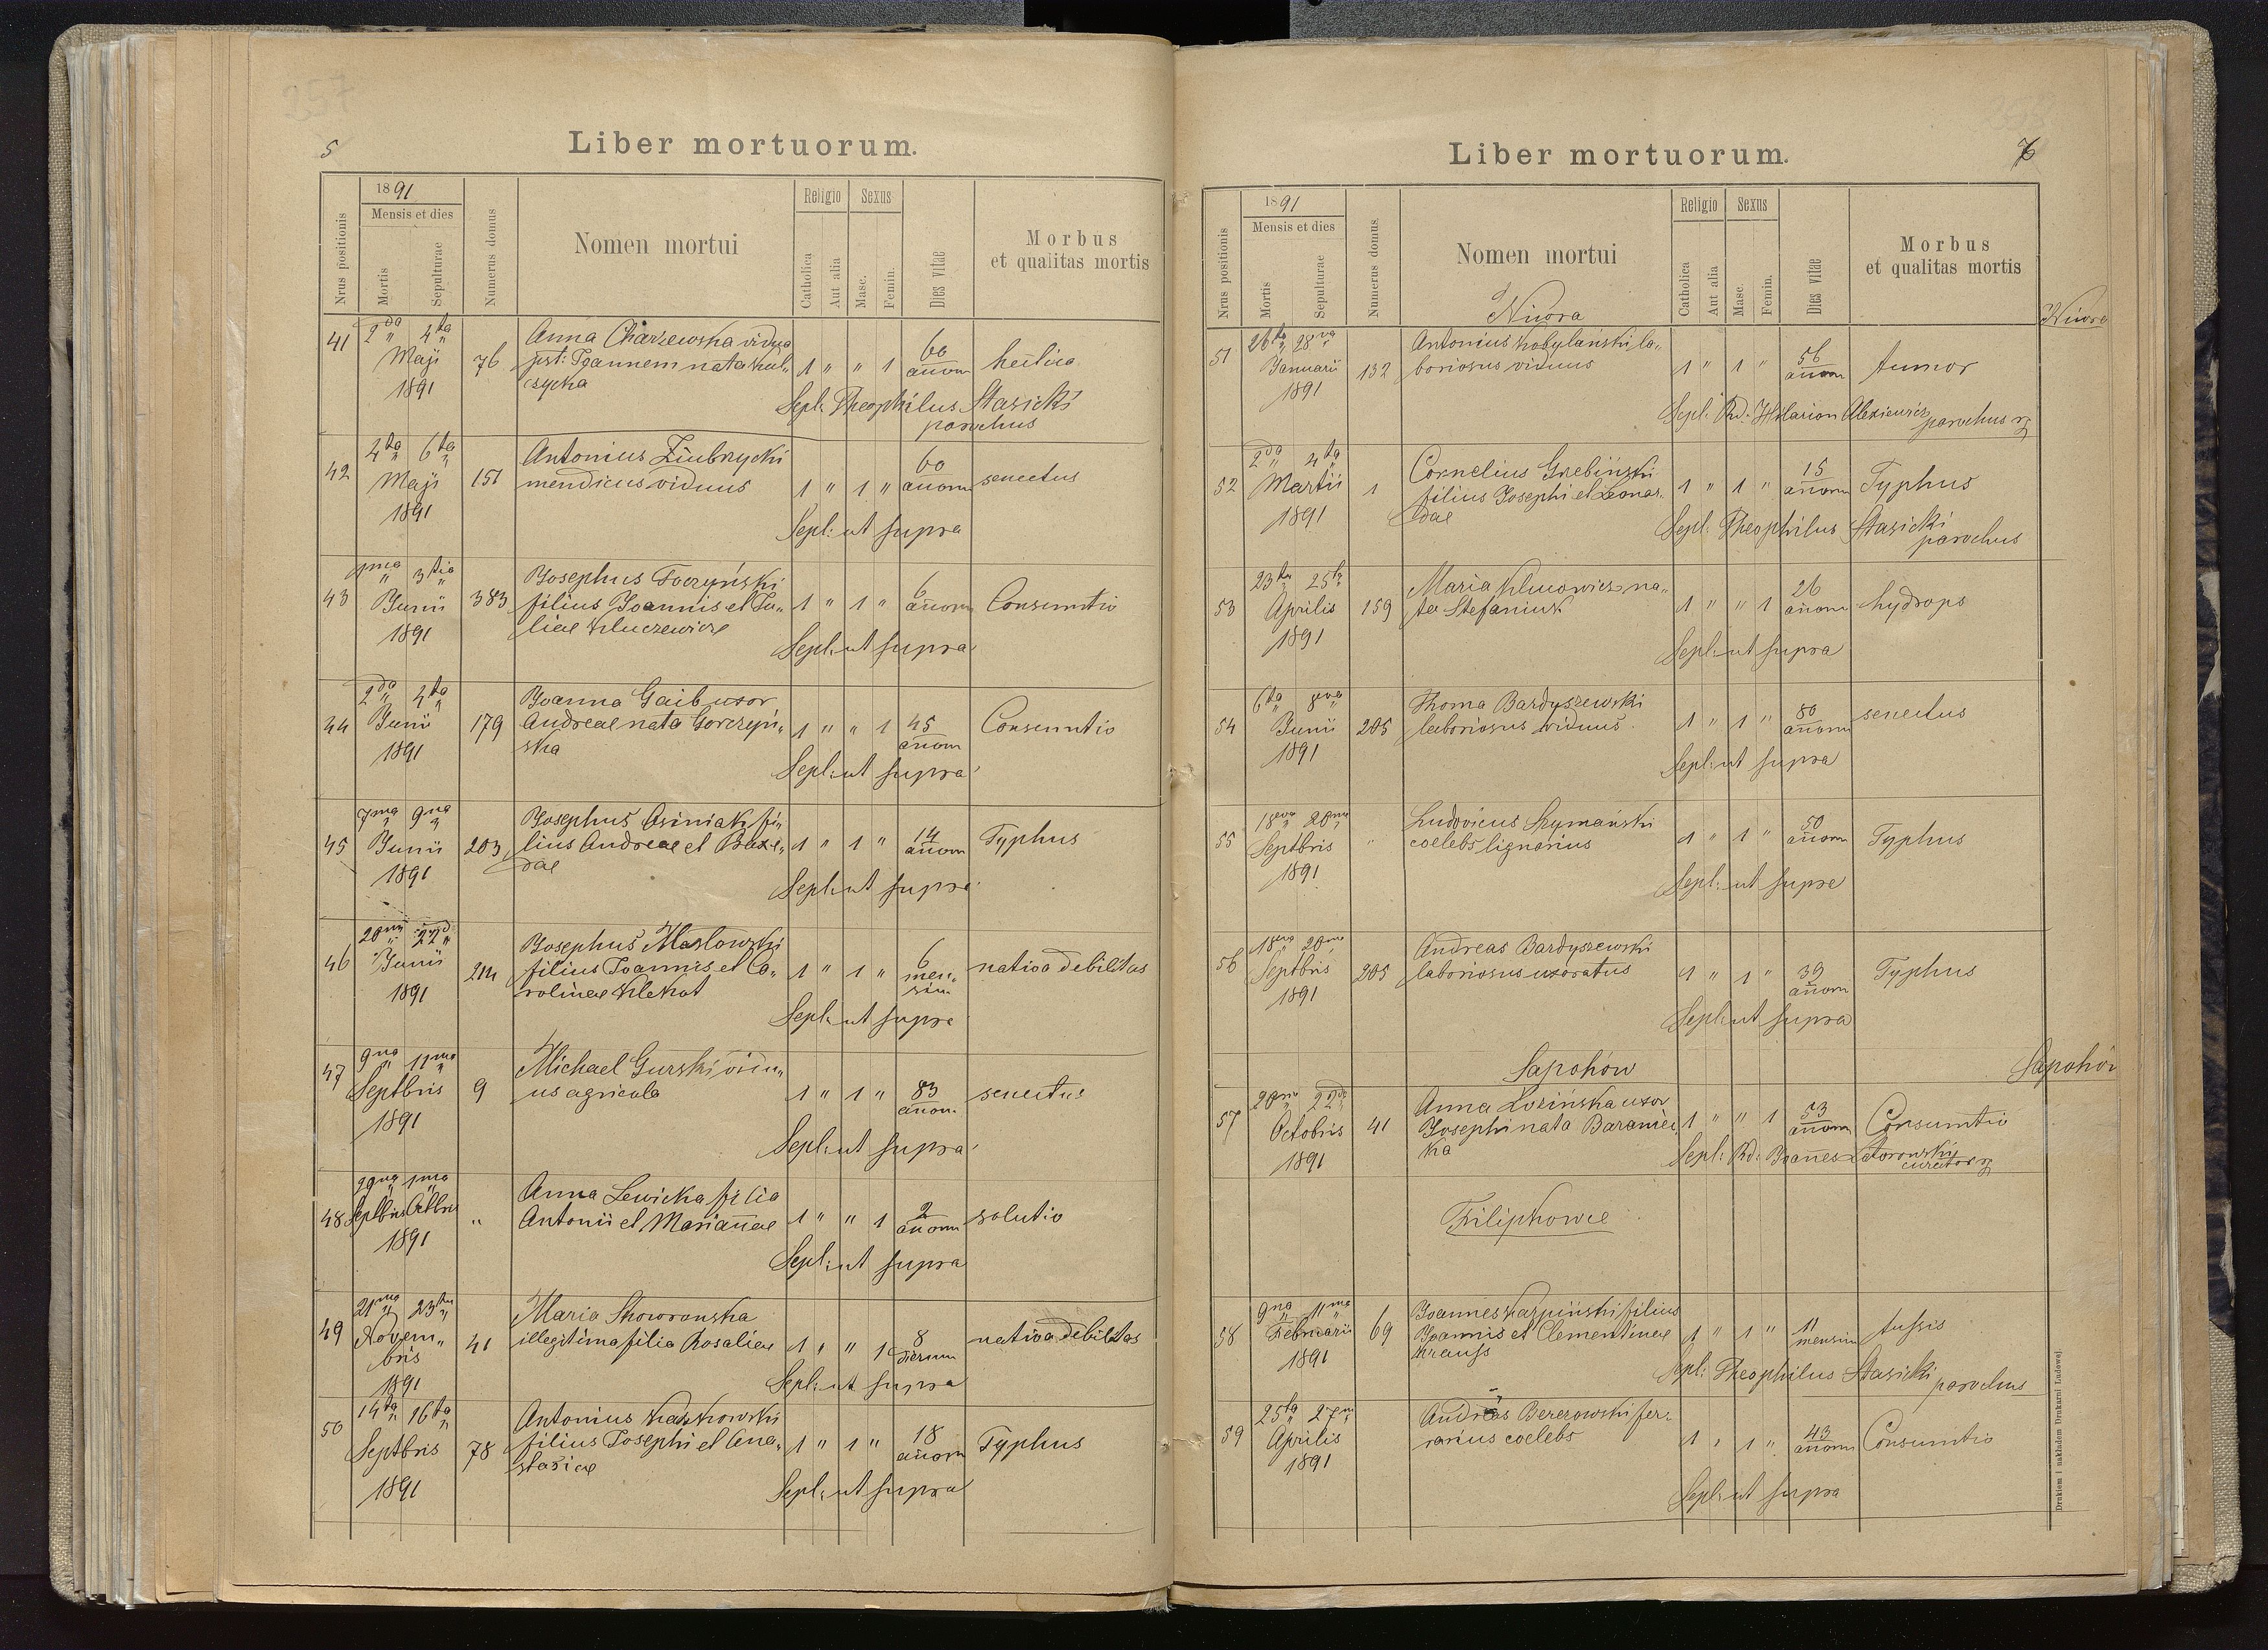 257
5
Liber mortuorum.
Nrus positionis
1891
Mensis et dies
Mortis
Sepulturae
Numerus domus
Nomen mortui
Religio
Catholica
Aut alia
Sexus
Masc.
Femin.
Dies vitae
Morbus
et qualitas mortis
41 2da 4ta
Maji
1891
76
Anna Charzewska vidua
pst: Joannem nata Kul„
czycka
1 „ „ 1
60
añorum
hectica
Sepl: Theophilus Stasicki
parochus
42 4ta 6ta
Maji
1891
151
Antonius Ziubrzycki
mendicus viduus
1 „ 1 „
60
añorum
senectus
Sepl: ut supra
43 1ma 3tia
Junii
1891
383
Josephus Toczyński
filius Joannis et Ju„
liae Kluczewicz
1 „ 1 „
6
añorum
Consumtio
Sepl: ut supra
44 2da 4ta
Junii
1891
179
Joanna Gaib uxor
Andreae nata Gorczyń„
ska
1 „ „ 1
45
añorum
Consumtio
Sepl: ut supra
45 7ma 9na
Junii
1891
203
Josephus Osiniak fi„
lius Andreae et Praxe„
dae
1 „ 1 „
14
añorum
Typhus
Sepl: ut supra
46 20ma 22da
Junii
1891
214
Josephus Masłowski
filius Joannis et Ca„
rolinae Klekot
1 „ 1 „
6
men„
sium
nativa debilitas
Sepl: ut supra
47 9na 11ma
Septbris
1891
9
Michael Gurski vidu„
us agricola
1 „ 1 „
83
añorum
senectus
Sepl: ut supra
48 29na 1ma
Septbris Octbris
1891
„
Anna Lewicka filia
Antonii et Mariañae
1 „ „ 1
2
añorum
solutio
Sepl: ut supra
49 21ma 23tia
Novem„
bris
1891
41
Maria Skowronska
illegitima filia Rosaliae
1 „ „ 1
8
dierum
nativa debilitas
Sepl: ut supra
50 14ta 16ta
Septbris
1891
78
Antonius Kaszkowski
filius Josephi et Ana„
stasiae
1 „ 1 „
18
añorum
Typhus
Sepl: ut supra
Liber mortuorum.
Nrus positionis
1891
Mensis et dies
Mortis
Sepulturae
Numerus domus.
Nomen mortui
Religio
Catholica
Aut alia
Sexus
Masc.
Femin.
Dies vitae
Morbus
et qualitas mortis
Niwra
Niwra
51 26ta 28va
Januarii
1891
132
Antonius Kobylański la„
boriosus viduus
1 „ 1 „
56
añorum
tumor
Sepl: Rd: Hilarion Alexiewicz
parochus rg
52 2da 4ta
Martii
1891
1
Cornelius Grebiński
filius Josephi et Leonar„
dae
1 „ 1 „
15
añorum
Typhus
Sepl: Theophilus Stasicki
parochus
53 23tia 25ta
Aprilis
1891
159
Maria Klucowicz na„
ta Stefaniuk
1 „ „ 1
26
añorum
hydrops
Sepl: ut supra
54 6ta 8va
Junii
1891
205
Thoma Bardyszewski
laboriosus viduus
1 „ 1 „
80
añorum
senectus
Sepl: ut supra
55 18va 20ma
Septbris
1891
„
Ludovicus Szymański
coelebs lignarius
1 „ 1 „
50
añorum
Typhus
Sepl: ut supra
56 18va 20ma
Septbris
1891
205
Andreas Bardyszewski
laboriosus uxoratus
1 „ 1 „
39
añorum
Typhus
Sepl: ut supra
Sapohów
Sapohów
57 20ma 22da
Octobris
1891
41
Anna Lozinska uxor
Josephi nata Baraniec
ka
1 „ „ 1
53
añorum
Consumtio
Sepl: Rd: Joañes
curator rg
Filipkowce
58 9na 11ma
Februarii
1891
69
Joannes Karpiński filius
Joannis et Clementinae
Krauss
1 „ 1 „
11
mensium
tussis
Sepl: Theophilus Stasicki
parochus
59 25ta 27ma
Aprilis
1891
Andreas Berezowski fer„
rarius coelebs
1 „ 1 „
43
añorum
Consumtio
Sepl: ut supra
Drukiem i nakładem Drukarni Ludowej.